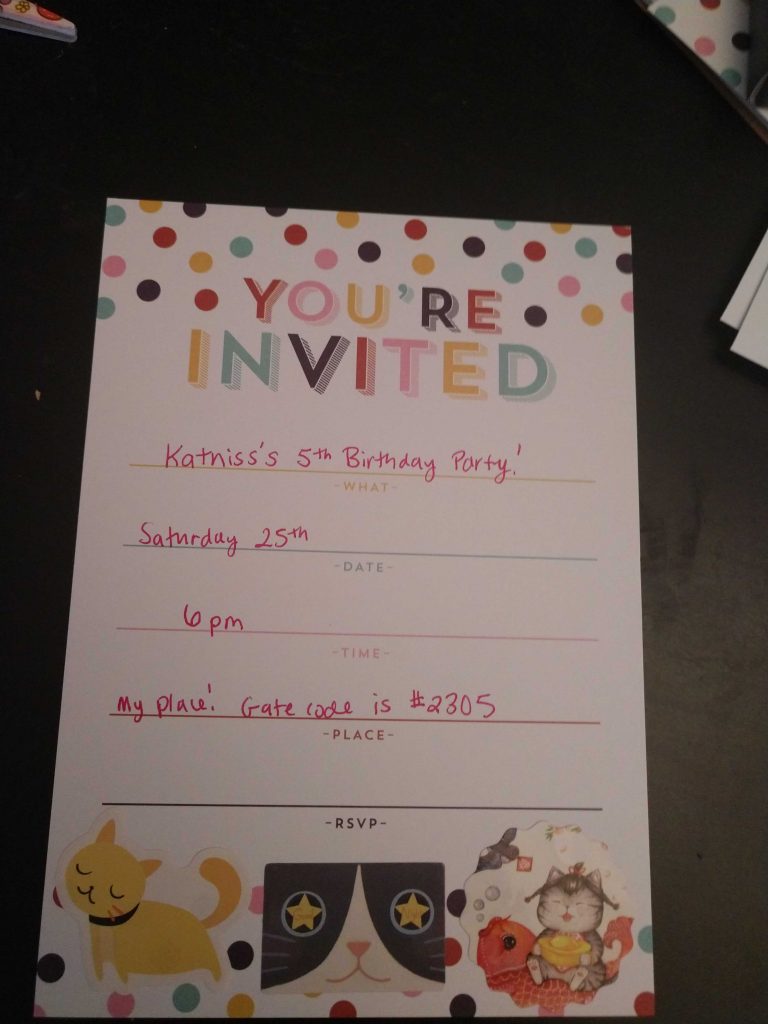 YOU'RE
INVITED
Katniss's 5th Birthday Party!
-WHAT-
Saturday 25th
-DATE-
6pm
-TIME-
My place! Gate code is #2305
-PLACE-
-RSVP-